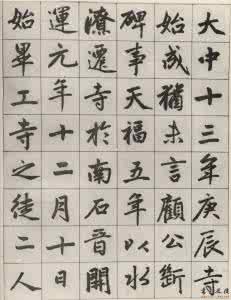 大中十三年庚辰寺
始成猶未言顧公斵
碑事天福五年以水
潦遷寺於南石音開
運元年十二月十日
始畢工寺之徒二人